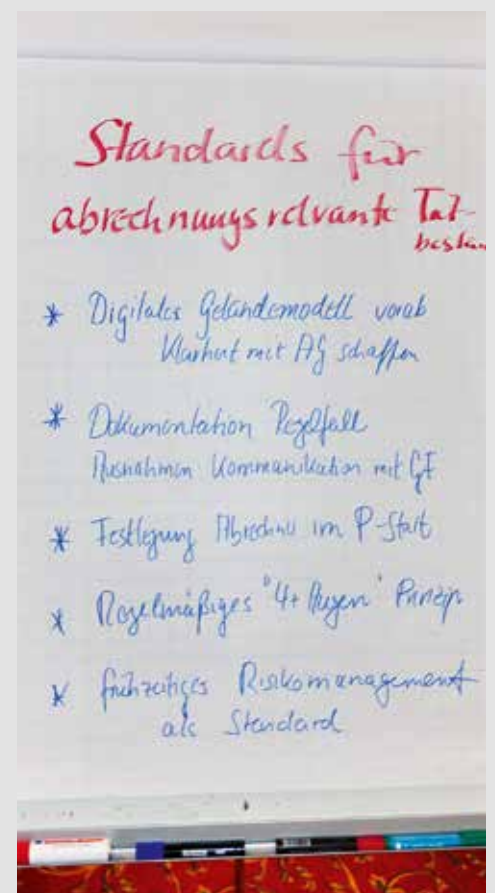 Standards für
abrechnungsrelvante Tat-
bestän
* Digitales Geländemodell vorab
Klarheit mit AG schaffen
* Dokumentation Regelfall
Ausnahmen Kommunikation mit GF
* Festlegung Abrechnu im P-Start
* Regelmäßiges "4+ Augen" Prinzip
* frühzeitiges Risikomanagement
als Standard